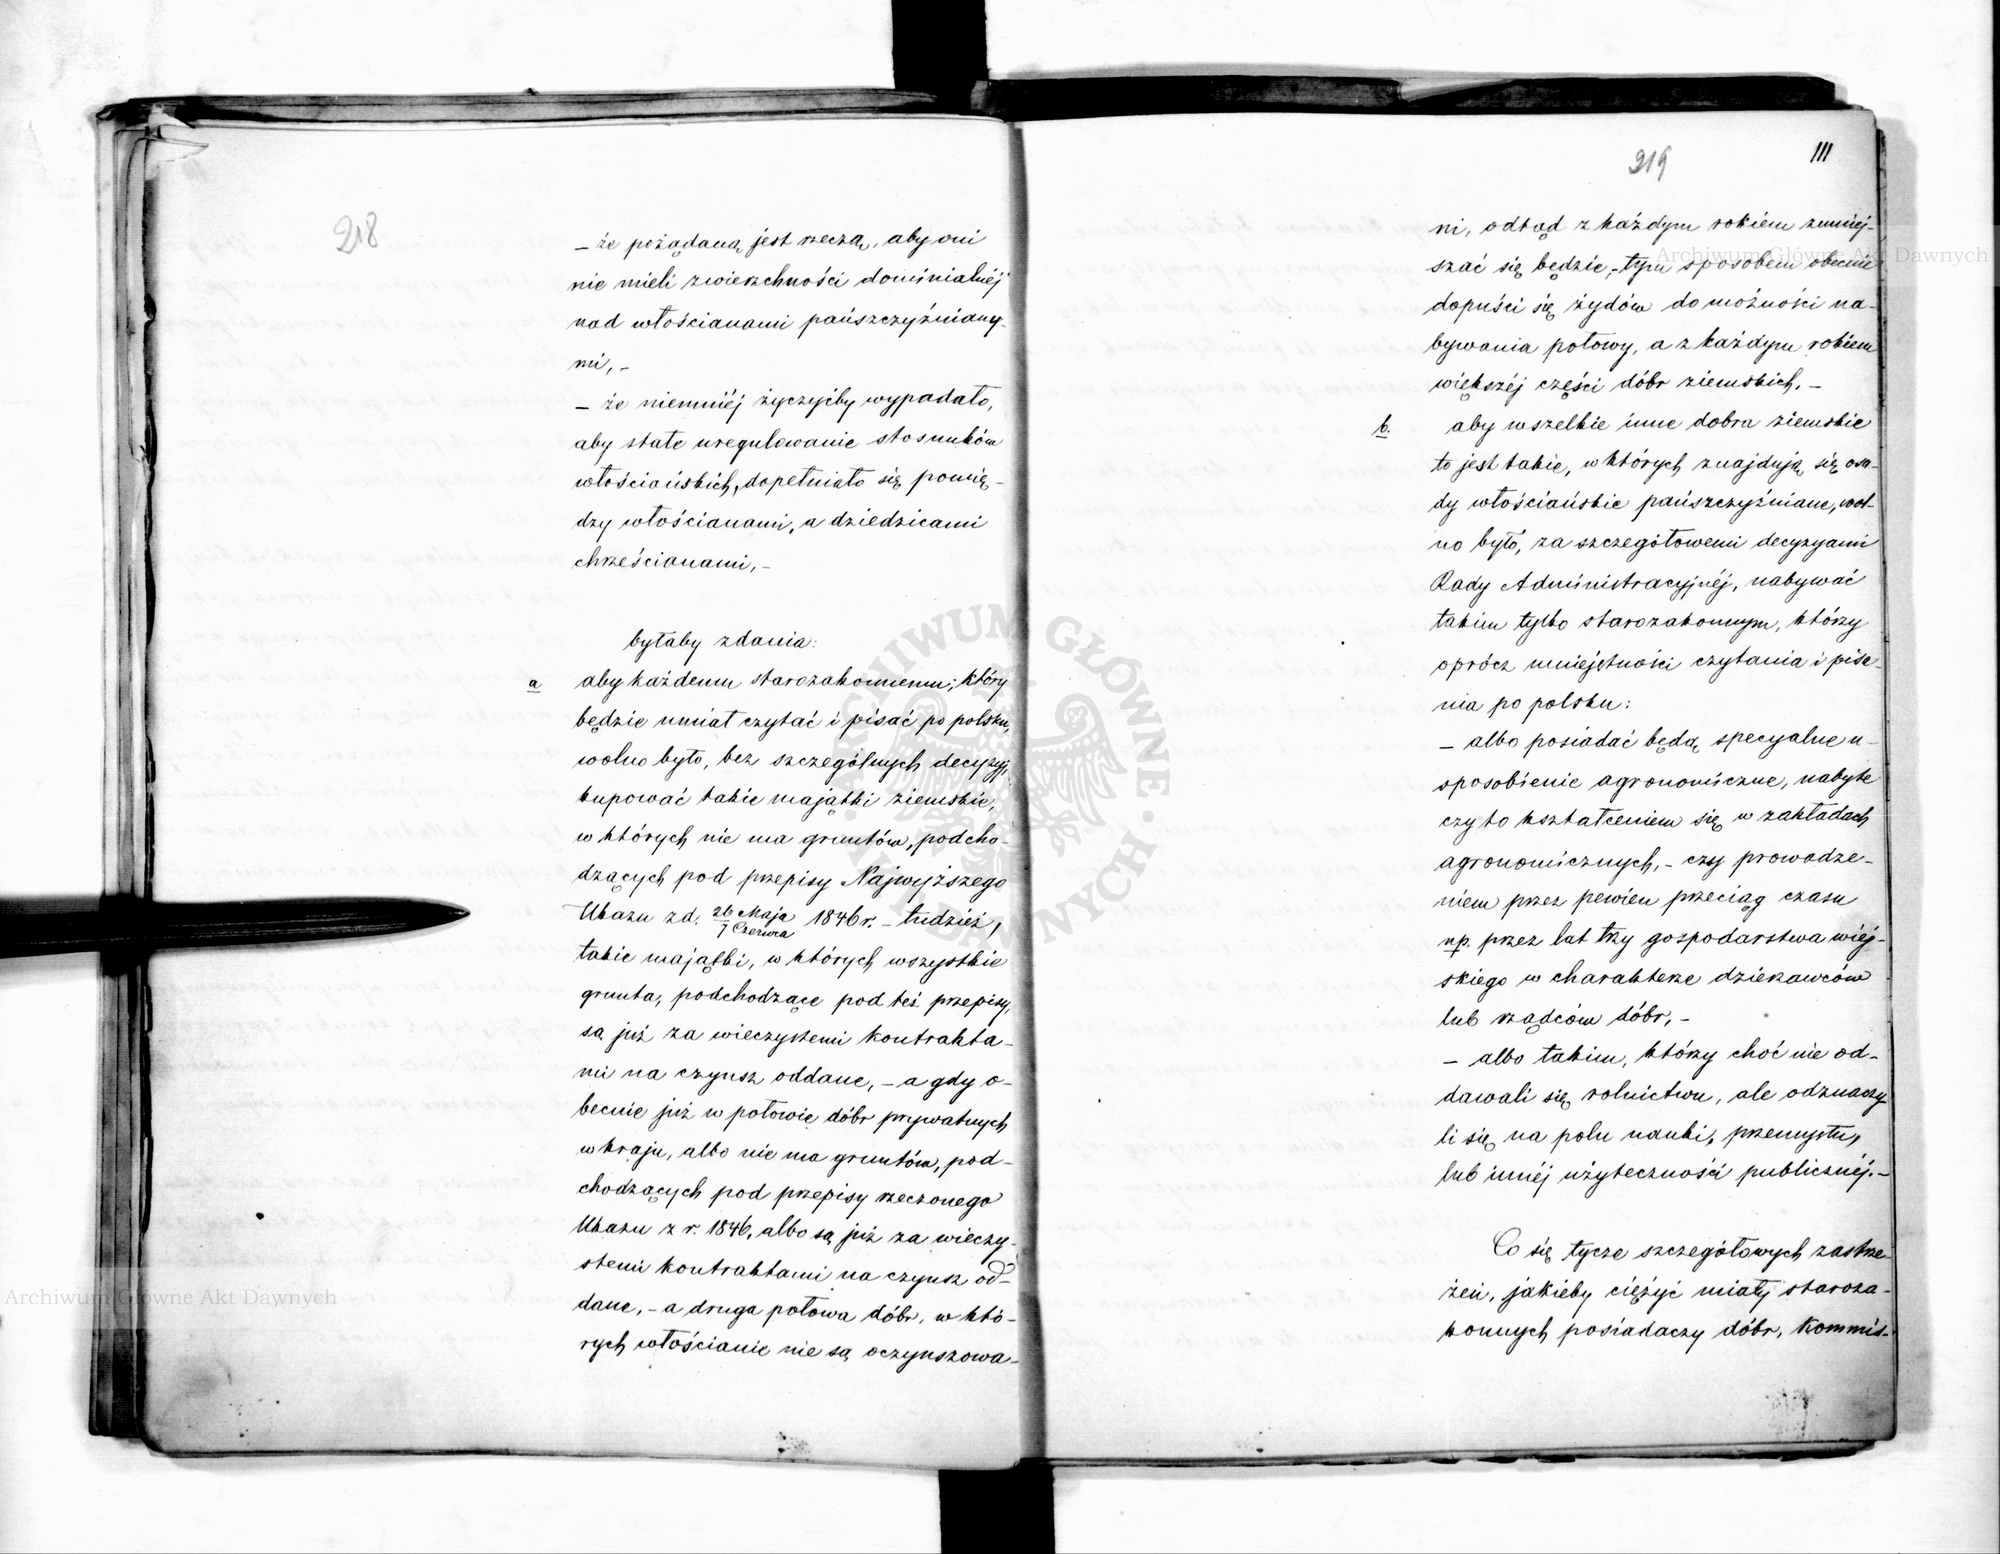 218
– że pożądaną jest rzeczą, aby oni
nie mieli zwierzchności dominialnéj
nad włościanami pańszczyźniany-
mi, –
– że niemniéj życzyćby wypadało,
aby stałe uregulowanie stosunków
włościańskich, dopełniało się pomię-
dzy włościanami, a dziedzicami
chrześcianami, –
byłaby zdania:
a aby każdemu starozakonnemu, który
będzie umiał czytać i pisać po polsku,
wolno było, bez szczególnych decyzyj,
kupować takie majątki ziemskie,
w których nie ma gruntów, podcho-
dzących pod przepisy Najwyższego
Ukazu z d. 26 Maja / 7 Czerwca 1846 r. – tudzież,
takie majątki, w których wszystkie
grunta, podchodzące pod też przepisy,
są już za wieczystemi kontrakta-
mi na czynsz oddane, – a gdy o-
becnie już w połowie dóbr prywatnych
w kraju, albo nie ma gruntów, pod-
chodzących pod przepisy rzeczonego
Ukazu z r. 1846, albo są już za wieczy-
stemi kontraktami na czynsz od-
dane, – a druga połowa dóbr, w któ-
rych włościanie nie są oczynszowa-
219
111
ni, odtąd z każdym rokiem zmniej-
szać się będzie, – tym sposobem obecnie
dopuści się żydów do możności na-
bywania połowy, a z każdym rokiem
większéj części dóbr ziemskich. –
b. aby wszelkie inne dobra ziemskie
to jest takie, w których znajdują się osa-
dy włościańskie pańszczyźniane, wol-
no było, za szczegółowemi decyzyami
Rady Administracyjnéj, nabywać
takim tylko starozakonnym, którzy
oprócz umiejętności czytania i pisa-
nia po polsku:
– albo posiadać będą specyalne u-
sposobienie agronomiczne, nabyte
czy to kształceniem się w zakładach
agronomicznych, – czy prowadze-
niem przez pewien przeciąg czasu
np. przez lat trzy gospodarstwa wiej-
skiego w charakterze dzierżawców
lub rządców dóbr, –
– albo takim, którzy choć nie od-
dawali się rolnictwu, ale odznaczy-
li się na polu nauki, przemysłu,
lub innéj użyteczności publicznéj. –
Co się tycze szczegółowych zastrze-
żeń, jakieby ciężyć miały staroza-
konnych posiadaczy dóbr, Kommis-
Archiwum Główne Akt Dawnych
Archiwum Główne Akt Dawnych
ARCHIWUM GŁÓWNE AKT DAWNYCH